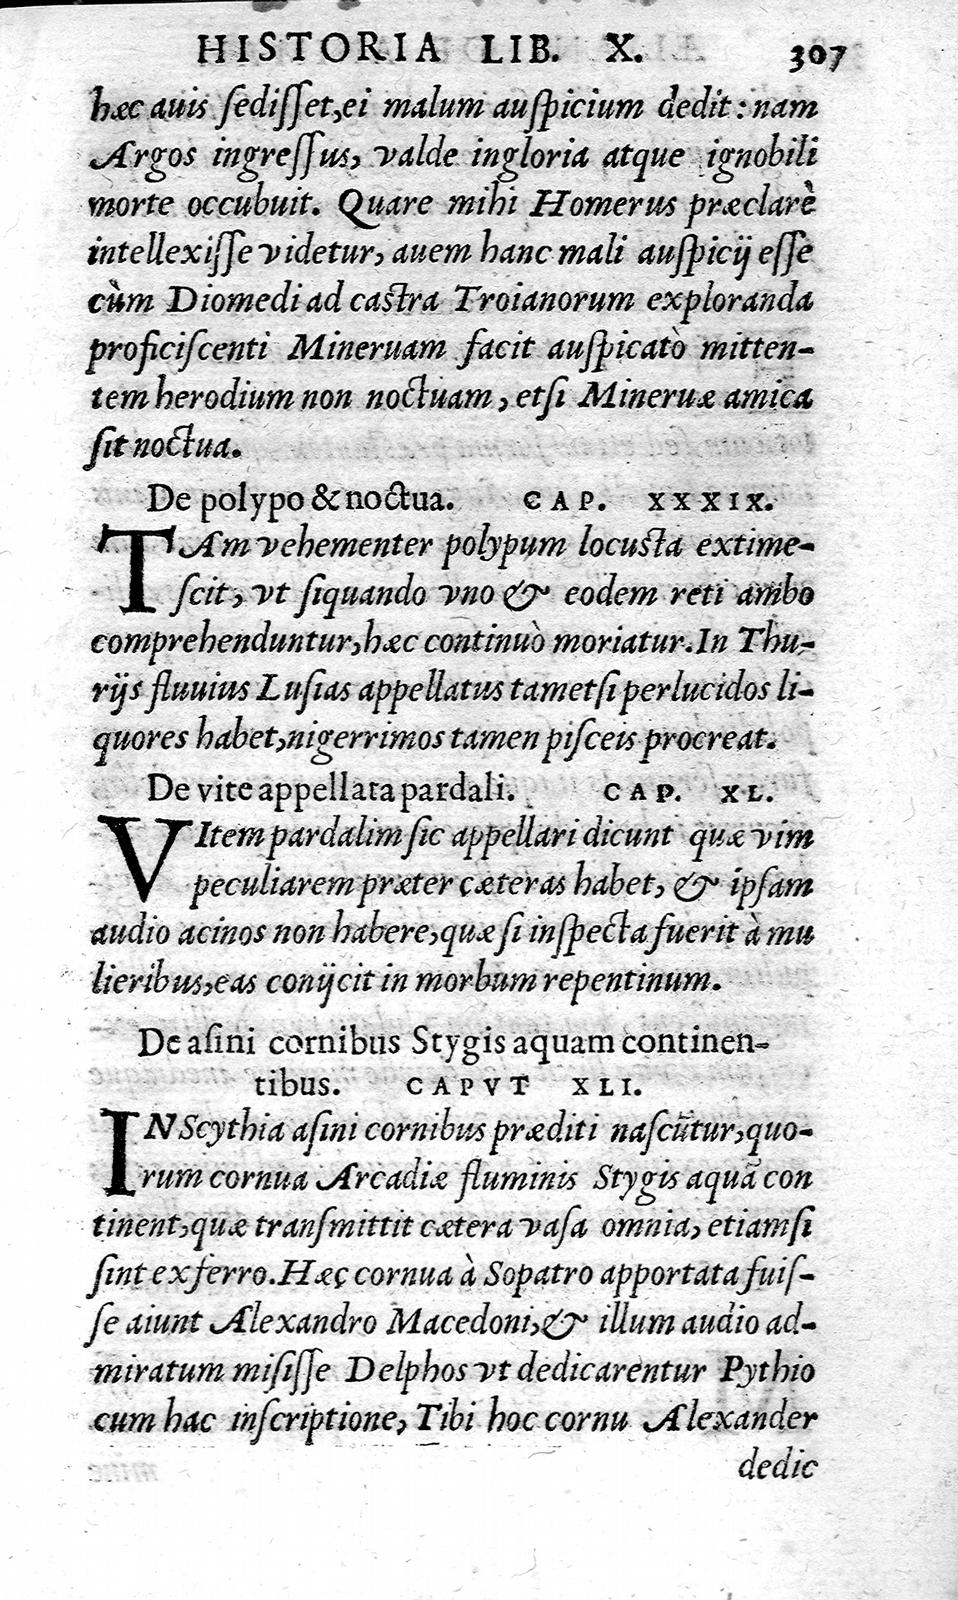 HISTORIA LIB. X. 307
hæc auis ſediſſet,ei malum auſpicium dedit: nam
Argos ingreſſus, valde ingloria atque ignobili
morte occubuit. Quare mihi Homerus præclarè
intellexiſſe videtur, auem hanc mali auſpicij eſſe
cùm Diomedi ad caſtra Troianorum exploranda
proficiſcenti Mineruam facit auſpicatò mitten-
tem herodium non noctuam, etſi Mineruæ amica
ſit noctua.
De polypo & noctua. CAP. XXXIX.
TAm vehementer polypum locuſta extime-
ſcit, vt ſiquando vno & eodem reti ambo
comprehenduntur,hæc continuò moriatur. In Thu-
rijs fluuius Luſias appellatus tametſi perlucidos li-
quores habet,nigerrimos tamen piſceis procreat.
De vite appellata pardali. CAP. XL.
VItem pardalim ſic appellari dicunt quæ vim
peculiarem præter cæteras habet, & ipſam
audio acinos non habere,quæ ſi inſpecta fuerit à mu
lieribus,eas conijcit in morbum repentinum.
De aſini cornibus Stygis aquam continen-
tibus. CAPVT XLI.
IN Scythia aſini cornibus præditi naſcũtur,quo-
rum cornua Arcadiæ fluminis Stygis aquã con
tinent,quæ tranſmittit cætera vaſa omnia, etiamſi
ſint ex ferro. Hæc cornua à Sopatro apportata fuiſ-
ſe aiunt Alexandro Macedoni,& illum audio ad-
miratum miſiſſe Delphos vt dedicarentur Pythio
cum hac inſcriptione, Tibi hoc cornu Alexander
dedic